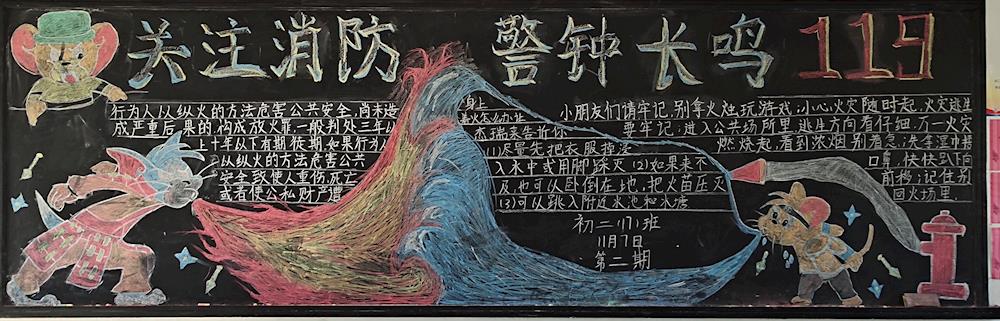 关注消防 警钟长鸣 119
行为人以纵火的方法危害公共安全,尚未造
成严重后果的,构成放火罪一般判处三年以
上十年以下有期徒期,如果行为人
以纵火的方法危害公共
安全致使人重伤,死亡
或者使公私财产遭
身上
着火怎么办让
杰瑞来告诉你
(1)尽早先把衣服撑
入水中或用脚踩灭(2)如果来不
及也可以卧倒在地,把火苗压灭
(3)可以跳入附近水池和水塘
小朋友们请牢记,别拿火烛玩游戏,小心火灾随时起,火灾逃生
要牢记:进入公共场所里,逃生方向看仔细,万一火灾
燃烧起,看到浓烟别着急;洗手湿巾捂
口鼻,快快趴下向
前挡;记住别
回火场里.
初二(7)班
11月7日
第二期